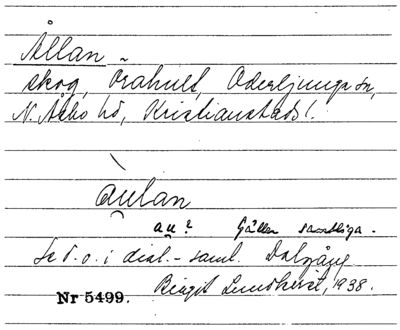 Ållan
skog, Örahult, Oderljunga sn,
N. Åsbo hd, Kristianstads l.
au̯lan
au̯? Gäller samtliga.
Se d. o. i dial.-saml. Dalgång
Birgit Lundkvist, 1938.
Nr 5499.